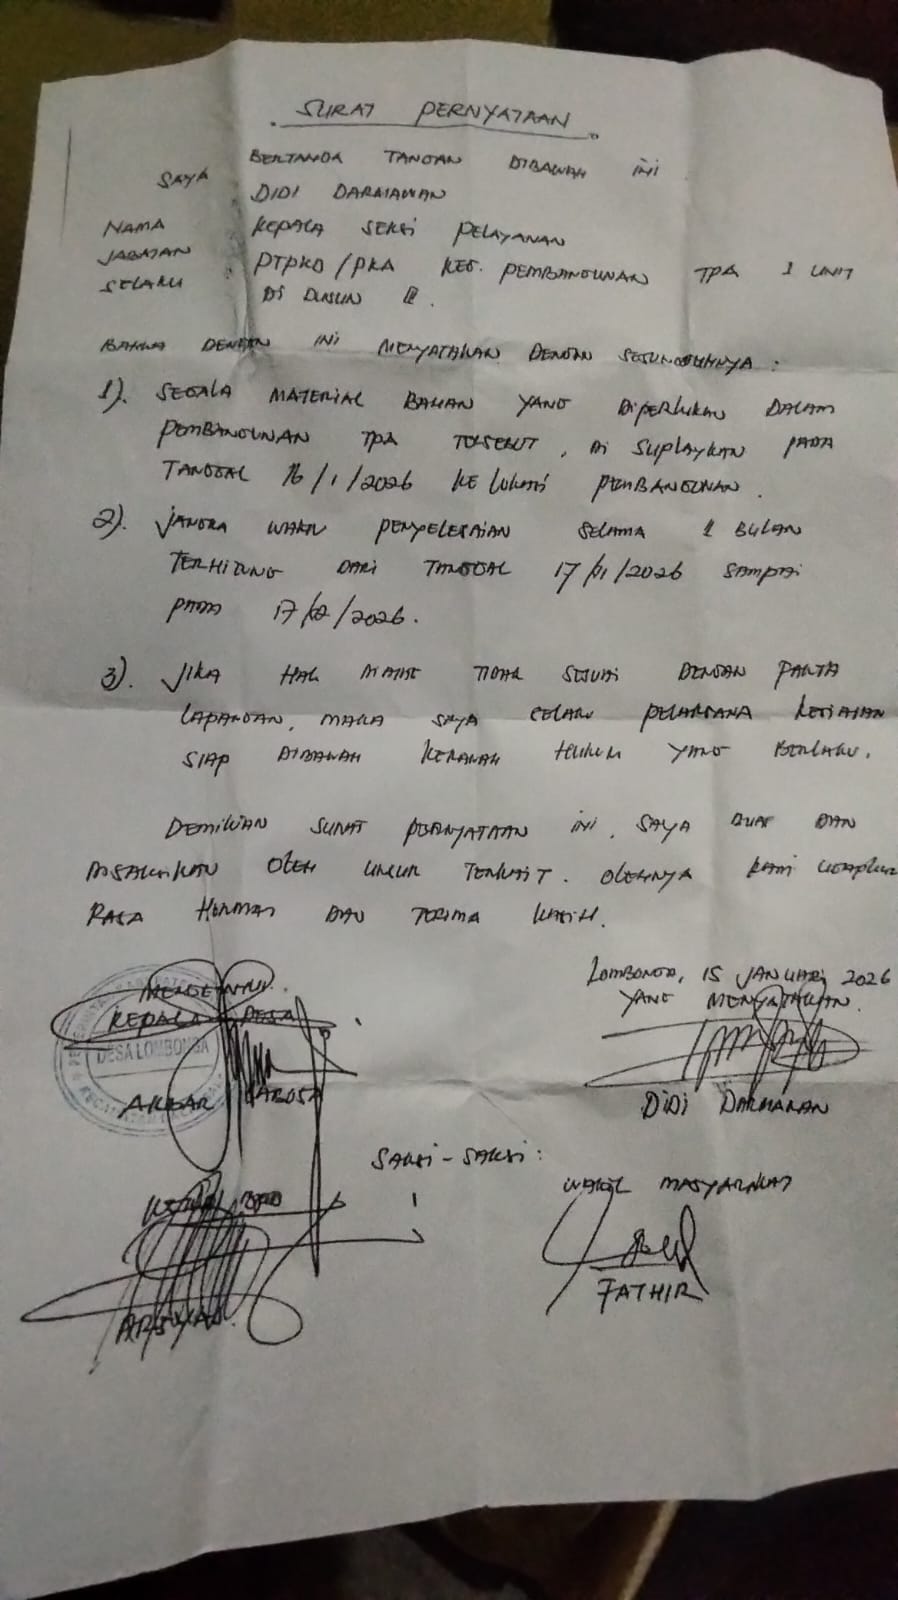 SURAT PERNYATAAN
SAYA BERTANDA TANGAN DIBAWAH INI
NAMA : DIDI DARMAWAN
JABATAN : KEPALA SEKSI PELAYANAN
SELAKU : PTPKD/PKA KEG. PEMBANGUNAN TPA 1 UNIT
DI DUSUN II.
BAHWA DENGAN INI MENYATAKAN DENGAN SESUNGGUHNYA :
1). SEGALA MATERIAL BAHAN YANG DIPERLUKAN DALAM
PEMBANGUNAN TPA TERSEBUT, DI SUPLAYKAN PADA
TANGGAL 16/1/2026 KE LOKASI PEMBANGUNAN.
2). JANGKA WAKTU PENYELESAIAN SELAMA 1 BULAN
TERHITUNG DARI TANGGAL 17/01/2026 SAMPAI
PADA 17/02/2026.
3). JIKA HAL TIDAK SESUAI DENGAN FAKTA
LAPANGAN, MAKA SAYA SELAKU PELAKSANA KEGIATAN
SIAP DIBAWAH KERANAH HUKUM YANG BERLAKU.
DEMIKIAN SURAT PERNYATAAN INI, SAYA BUAT DAN
DISAKSIKAN OLEH UNSUR TERKAIT. OLEHNYA KAMI UCAPKAN
RASA HORMAT DAN TERIMA KASIH.
LOMBONGA, 15 JANUARI 2026
MENGETAHUI. YANG MENYATAKAN.
KEPALA DESA
DESA LOMBONGA
AKBAR
DIDI DARMAWAN
SAKSI-SAKSI :
KETUA BPD WAKIL MASYARAKAT
FATHIR